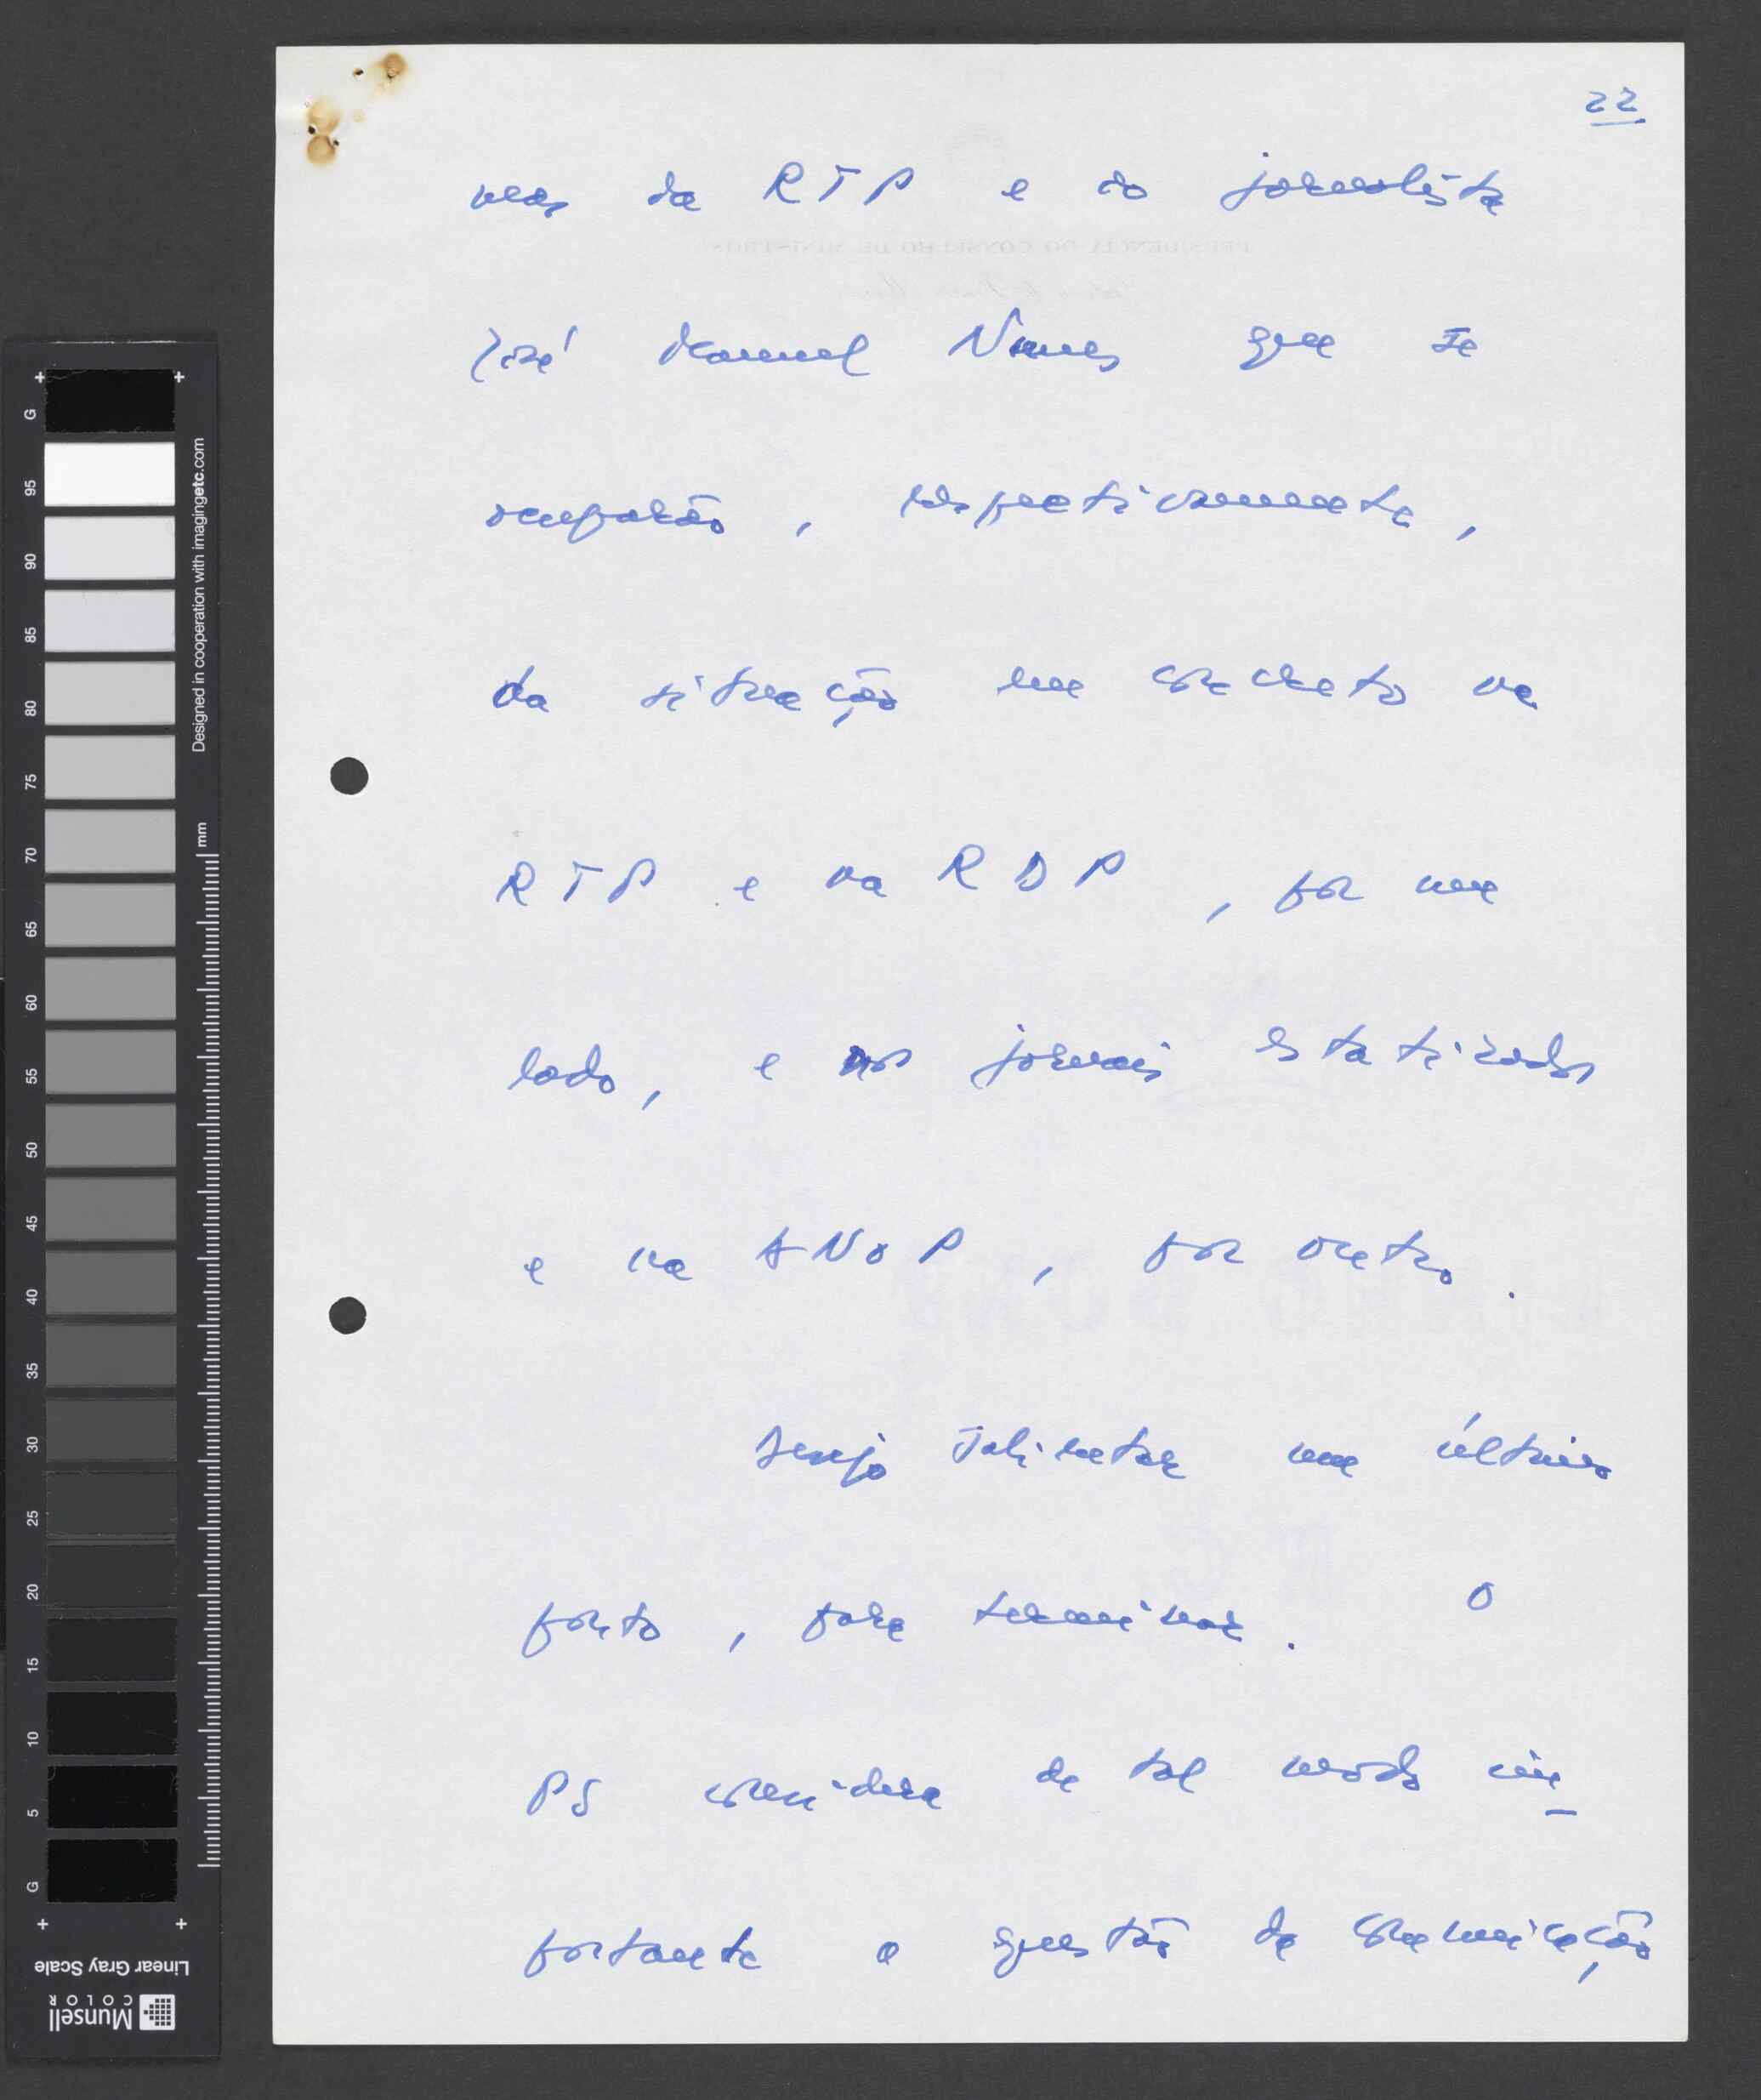 22
nes da RTP e do jornalista
José Manuel Nunes que se
ocuparão, respectivamente,
da situação em concreto na
RTP e na RDP, por um
lado, e nos jornais estatizados
e na ANOP, por outro.
Desejo salientar um último
ponto, para terminar. O
PS considera de tal modo im-
portante a questão da comunicação
PRESIDÊNCIA DO CONSELHO DE MINISTROS
G 95 90 85 80 75 70 65 60 55 50 45 40 35 30 25 20 15 10 5 G
Designed in cooperation with imagingetc.com
mm
Linear Gray Scale
Munsell
COLOR